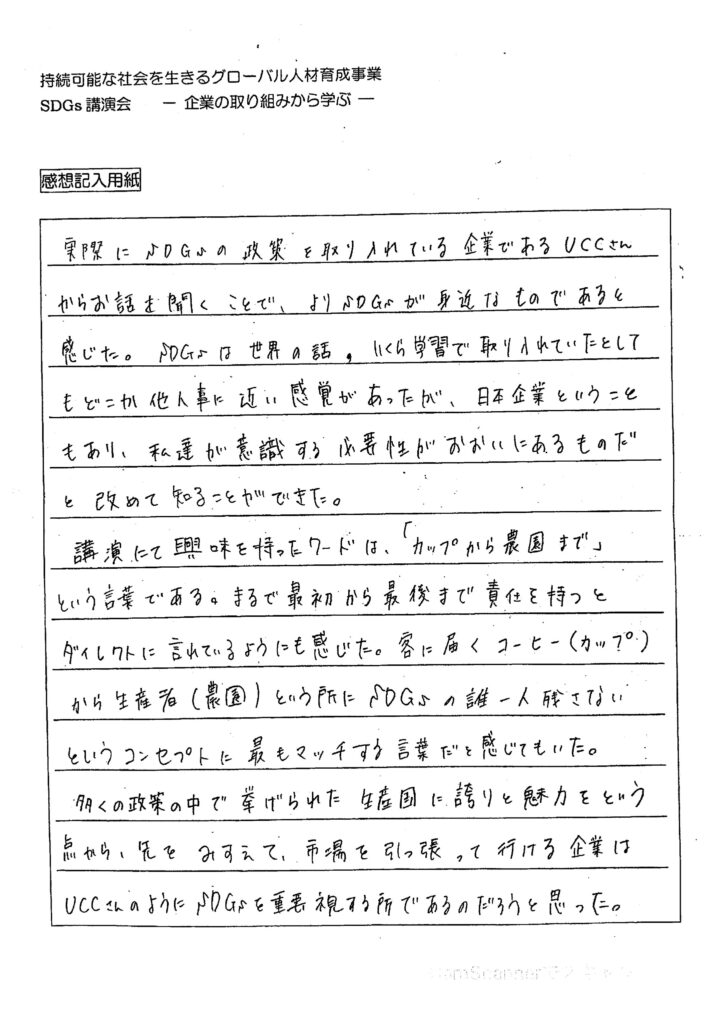 持続可能な社会を生きるグローバル人材育成事業
SDGs 講演会 － 企業の取り組みから学ぶ －
感想記入用紙
実際に SDGs の 政策 を取り入れている 企業である UCCさん
からお話を聞くことで、より SDGs が 身近なものであると
感じた。 SDGs は 世界の話, いくら学習で取り入れていたとして
もどこか他人事に近い感覚があったが、日本企業ということ
もあり、私達が意識する必要性がおおいにあるものだ
と改めて知ることができた。
講演にて興味を持ったワードは、「カップから農園まで」
という言葉である。まるで最初から最後まで責任を持つと
ダイレクトに言れているようにも感じた。客に届くコーヒー(カップ)
から生産者(農園)という所に SDGs の誰一人残さない
というコンセプトに最もマッチする言葉だと感じてもいた。
多くの政策の中で挙げられた生産国に誇りと魅力をという
点から、先をみすえて、市場を引っ張って行ける企業は
UCCさんのように SDGs を重要視する所であるのだろうと思った。